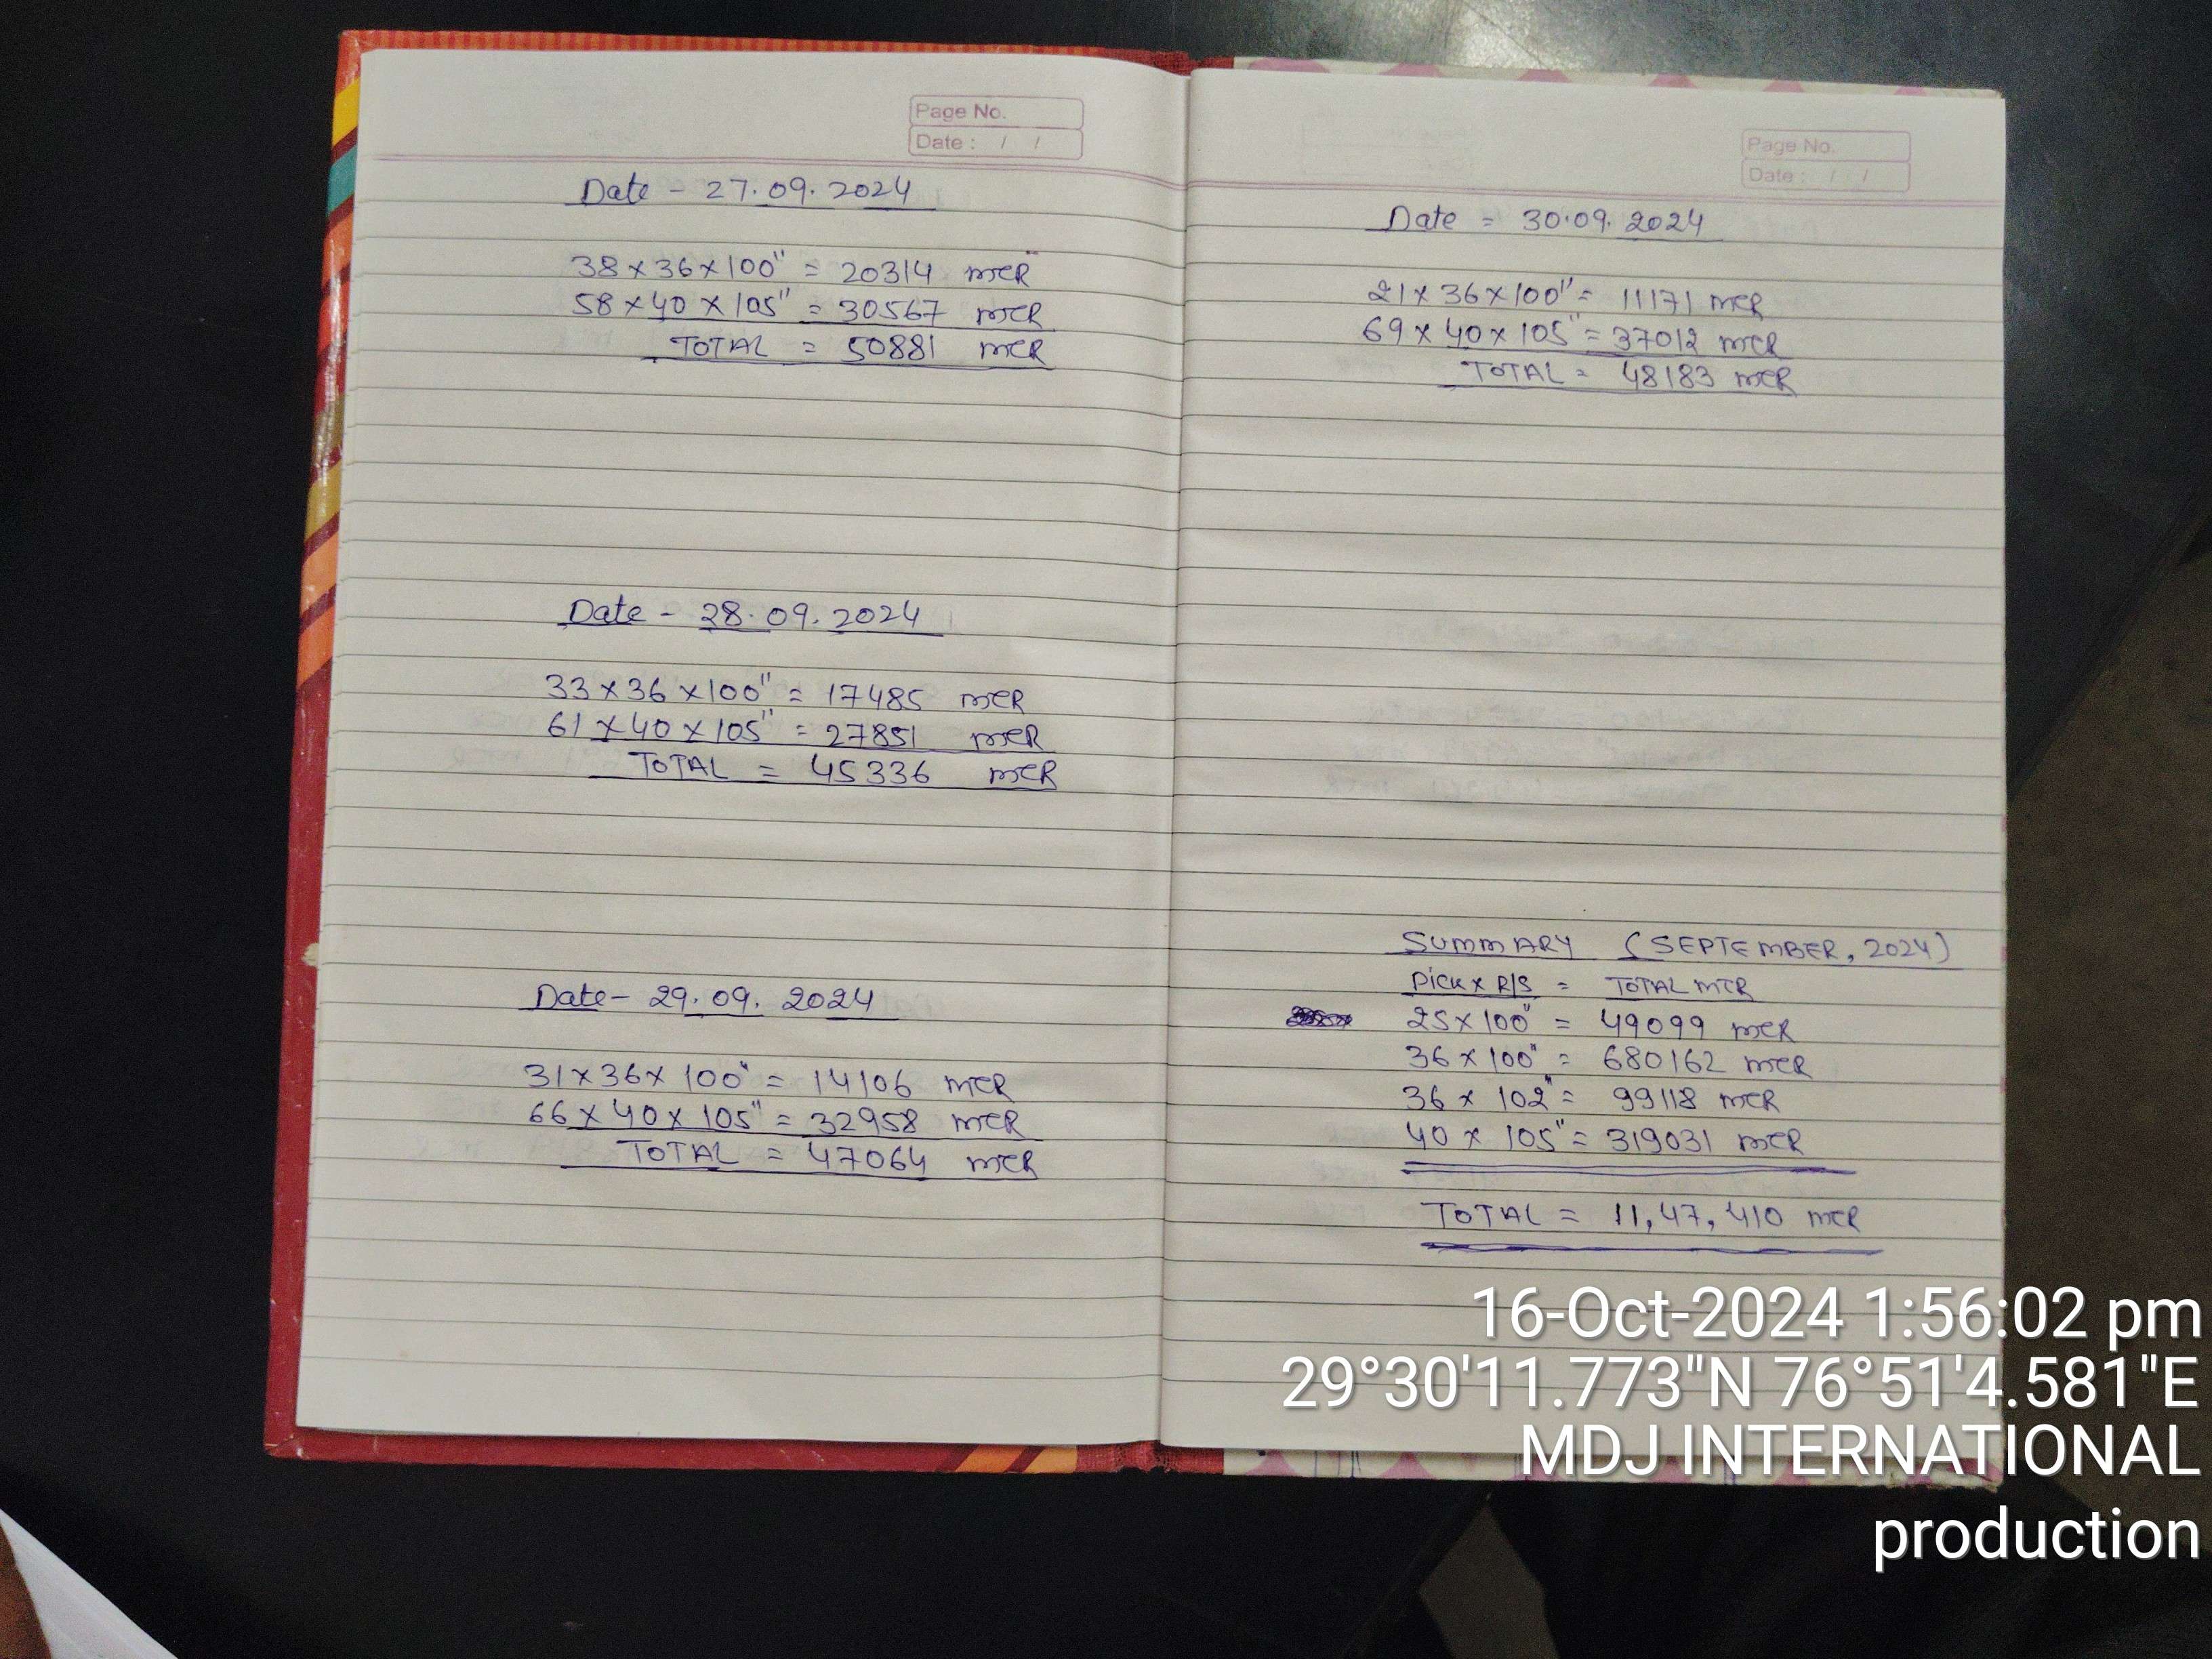 Page No.
Date : / /
Date - 27.09.2024
38 x 36 x 100" = 20314 MTR
58 x 40 x 105" = 30567 MTR
TOTAL = 50881 MTR
Date - 28.09.2024
33 x 36 x 100" = 17485 MTR
61 x 40 x 105" = 27851 MTR
TOTAL = 45336 MTR
Date - 29.09.2024
31 x 36 x 100" = 14106 MTR
66 x 40 x 105" = 32958 MTR
TOTAL = 47064 MTR
Page No.
Date : / /
Date = 30.09.2024
21 x 36 x 100" = 11171 MTR
69 x 40 x 105" = 37012 MTR
TOTAL = 48183 MTR
SUMMARY (SEPTEMBER, 2024)
PICK x R/S = TOTAL MTR
25 x 100" = 49099 MTR
36 x 100" = 680162 MTR
36 x 102" = 99118 MTR
40 x 105" = 319031 MTR
TOTAL = 11,47,410 MTR
16-Oct-2024 1:56:02 pm
29°30'11.773"N 76°51'4.581"E
MDJ INTERNATIONAL
production